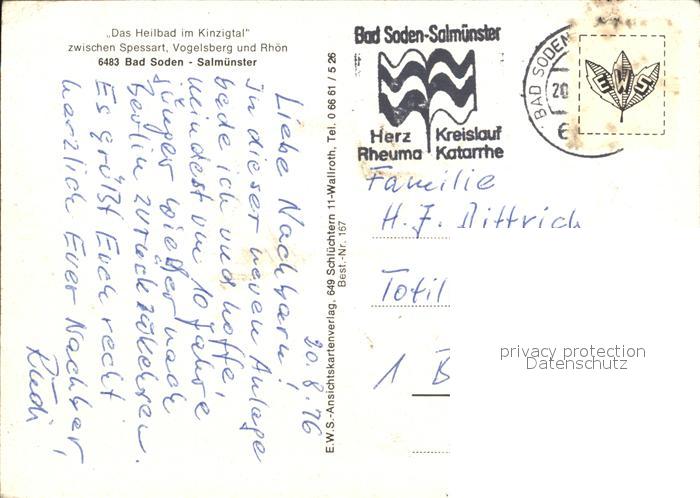 „Das Heilbad im Kinzigtal"
zwischen Spessart, Vogelsberg und Rhön
6483 Bad Soden - Salmünster
20.8.76
Liebe Nachbarn!
In dieser neuen Anlage
bade ich und hoffe,
mindest um 10 Jahre
jünger wieder nach
Berlin zurückzukehren.
Es grüßt Euch recht
herzlich Euer Nachbar,
Rudi
E.W.S.-Ansichtskartenverlag, 649 Schlüchtern 11-Wallroth, Tel. 0 66 61 / 5 26
Best.-Nr. 167
Bad Soden-Salmünster
Herz Kreislauf
Rheuma Katarrhe
BAD SODEN
20
6
EWS
Familie
H. J. Dittrich
Totil
1 B
privacy protection
Datenschutz